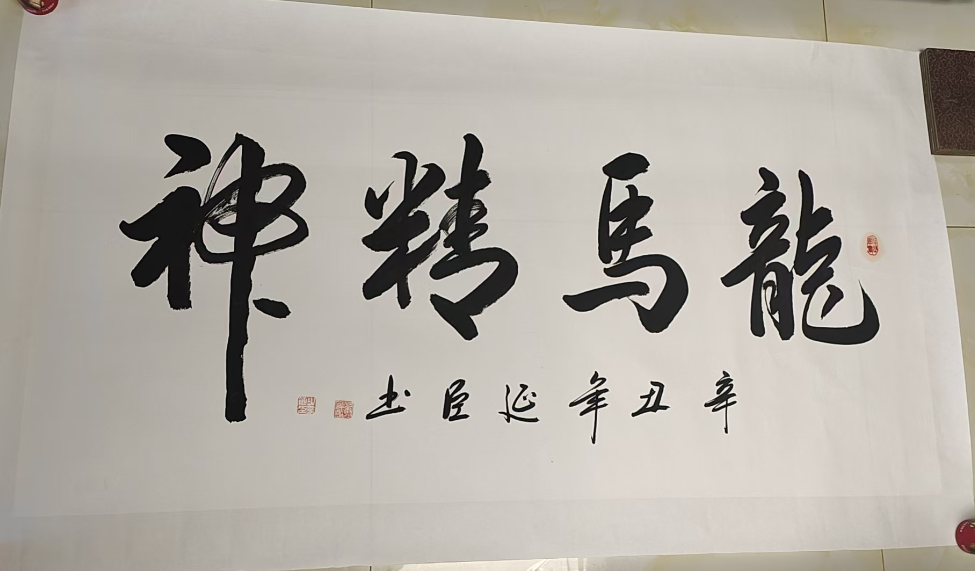 龍馬精神
辛丑年延臣书